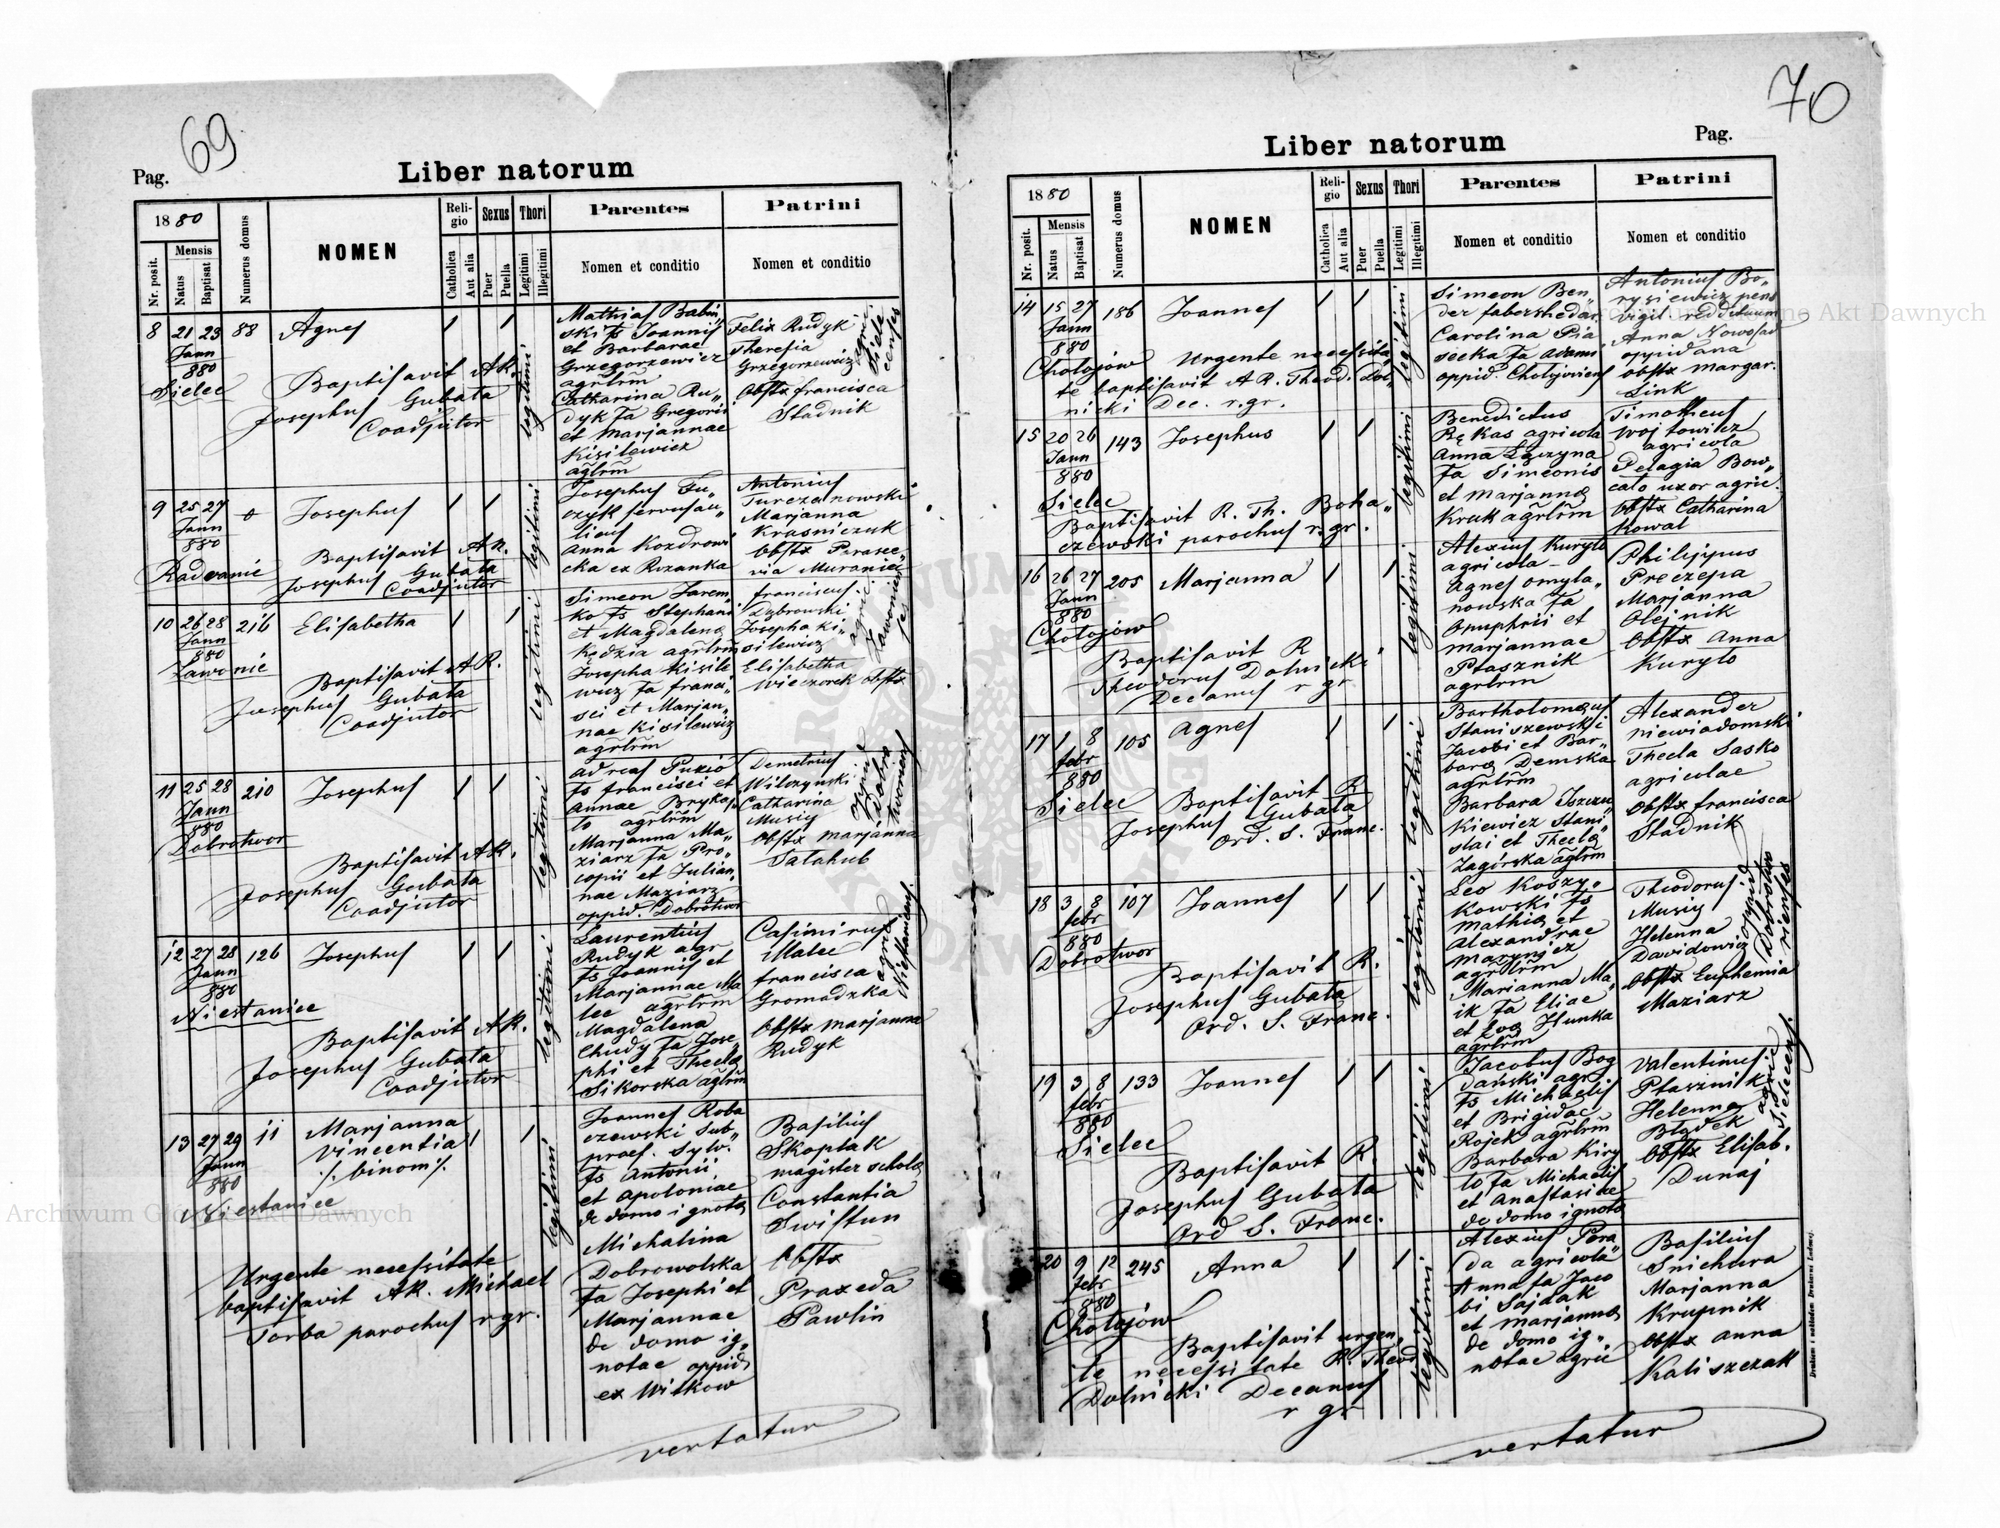 69
Pag.
Liber natorum
1880
Nr. posit.
Mensis
Natus
Baptisat
Numerus domus
NOMEN
Religio
Catholica
Aut alia
Sexus
Puer
Puella
Thori
Legitimi
Illegitimi
Parentes
Nomen et conditio
Patrini
Nomen et conditio
8 21 23 88 Agnes
Jann
880
Sielec
Baptisavit AR.
Josephus Gubata
Coadjutor
legitimi
Mathias Babin„
ski fs Joannis
et Barbarae
Grzegorzewicz
agrlrm
Catharina Ru„
dyk fa Gregorii
et Marjannae
Kisilewicz
agrlrm
Felix Rudyk
Theresia
Grzegorzewicz
Obstx francisca
Stadnik
agric.
Siele
censes
9 25 27 0 Josephus
Jann
880
Radwanie
Baptisavit AR.
Josephus Gubata
Coadjutor
legitimi
Josephus Fu„
czyk servus au„
licus
Anna Kozdrow
cka ex Rozanka
Antonius
Turczanowski
Marjanna
Krasniczuk
Obstx Parasce„
via Muraniec
10 26 28 216 Elisabetha
Jann
880
Zawonie
Baptisavit AR.
Josephus Gubata
Coadjutor
legitimi
Simeon Jarem„
ko fs Stephani
et Magdalena
Kędzia agrlrm
Josepha Kisile
wicz fa franci„
sci et Marjan„
nae Kisilewicz
agrlrm
franciscus
Dąbrowski
Josepha Ki„
silewicz
Elisabetha
Wieczorek obstx
agric.
Zawonien
ses
11 25 28 210 Josephus
Jann
880
Dobrotwor
Baptisavit AR.
Josephus Gubata
Coadjutor
legitimi
Adreas Puzio
fs francisci et
Annae Bryka„
ło agrlrm
Marjanna Ma„
ziarz fa Pro„
copii et Julian„
nae Maziarz
oppid. Dobrotwor
Demetrius
Wilczynski
Catharina
Musiy
Obstx Marjanna
Sałahub
oppid
Dobro
tworens
12 27 28 126 Josephus
Jann
880
Niestanice
Baptisavit AR.
Josephus Gubata
Coadjutor
legitimi
Laurentius
Rudyk agr
fs Joannis et
Marjannae Ma
lec agrlrm
Magdalena
Chudy fa Jose„
phi et Thecla
Sikorska agrlrm
Casimirus
Malec
francisca
Gromadzka
Obstx Marjanna
Rudyk
agric
Niestanicens.
13 27 29 11 Marjanna
Vincentia
./. binom ./.
Jann
880
Niestanice
Urgente necessitate
baptisavit AR. Michael
Torba parochus r.gr.
legitimi
Joannes Roba
czewski sub„
praef. sylv.
fs Antonii
et Apoloniae
de domo ignota
Michalina
Dobrowolska
fa Josephi et
Marjannae
de domo ig„
notae oppid
ex Witkow
Basilius
Skoplak
magister schola
Constantia
Swistun
Obstx
Praxeda
Pawlin
vertatur
70
Pag.
Liber natorum
1880
Nr. posit.
Mensis
Natus
Baptisat
Numerus domus
NOMEN
Religio
Catholica
Aut alia
Sexus
Puer
Puella
Thori
Legitimi
Illegitimi
Parentes
Nomen et conditio
Patrini
Nomen et conditio
14 15 27 186 Joannes
Jann
880
Chołojów Urgente necessita„
te baptisavit AR. Theod. Doł„
nicki Dec. r.gr.
legitimi
Simeon Ben„
der
Carolina Pia„
secka fa Adami
oppid. Chołojoviens
Antonius Bo„
rysiewicz pens
vigil
Anna Nowosad
oppidana
Obstx Margar.
Link
15 20 26 143 Josephus
Jann
880
Sielec
Baptisavit R. Th. Boha„
czewski parochus r.gr.
legitimi
Benedictus
Rękas agricola
Anna Łączyna
fa Simeonis
et Marjanna
Kruk agrlrm
Timotheus
Wojtowicz
agricola
Pelagia Bow„
cało uxor agric.
Obstx Catharina
Kowal
16 26 27 205 Marjanna
Jann
880
Chołojów
Baptisavit R
Theodorus Dołnicki
Decanus r gr
legitimi
Alexius Kuryło
agricola
Agnes Omyla„
nowska fa
Onuphrii et
Marjannae
Ptasznik
agrlrm
Philippus
Preczepa
Marjanna
Olejnik
Obstx Anna
Kuryło
17 1 8 105 Agnes
febr
880
Sielec
Baptisavit R
Josephus Gubata
Ord. S. Franc.
legitimi
Bartholomaeus
Staniszewski
Jacobi et Bar„
bara Demska
agrlrm
Barbara
kiewicz Stani„
slai et Thecla
Zagórska agrlrm
Alexander
Niewiadomski
Thecla Sasko
agricolae
Obstx francisca
Stadnik
18 3 8 107 Joannes
febr
880
Dobrotwor
Baptisavit R.
Josephus Gubata
Ord. S. Franc.
legitimi
Leo Koszy„
kowski fs
Mathia et
Alexandrae
agrlrm
Marianna Ma„
ik fa Eliae
et Eva Hunka
agrlrm
Theodorus
Musiy
Helenna
Dawidowicz
Obstx Euphemia
Maziarz
oppid
Dobrotwo
rienses
19 3 8 133 Joannes
febr
880
Sielec
Baptisavit R.
Josephus Gubata
Ord S. Franc.
legitimi
Jacobus Bog
dański agr
fs Michaelis
et Brigidae
Rojek agrlrm
Barbara Kiry
ło fa Michaelis
et Anastasiae
de domo ignota
Valentinus
Ptasznik
Helenna
Błądek
Obstx Elisab.
Dunaj
agric
Sielecens.
20 9 12 245 Anna
febr
880
Chołojów
Baptisavit urgen„
te necessitate R. Theod
Dołnicki Decanus
r gr
legitimi
Alexius Pera
da agricola
Anna fa Jaco
bi Sajdak
et Marjanna
de domo ig„
notae agric
Basilius
Snichura
Marjanna
Krupnik
Obstx Anna
Kaliszczak
vertatur
Archiwum Główne Akt Dawnych
Archiwum Główne Akt Dawnych